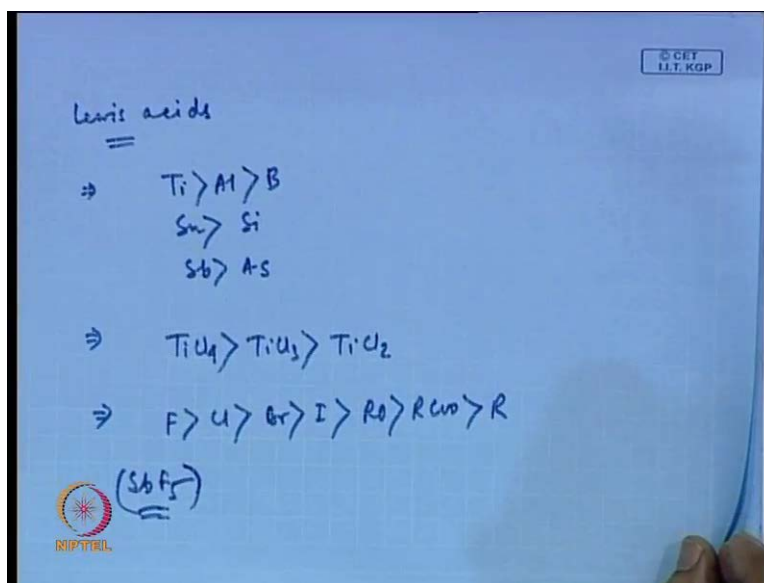 © CET
I.I.T. KGP
Lewis acids
⇒ Ti > Al > B
Sn > Si
Sb > As
⇒ TiCl4 > TiCl3 > TiCl2
⇒ F > Cl > Br > I > RO > RCOO > R
(SbF5)
NPTEL